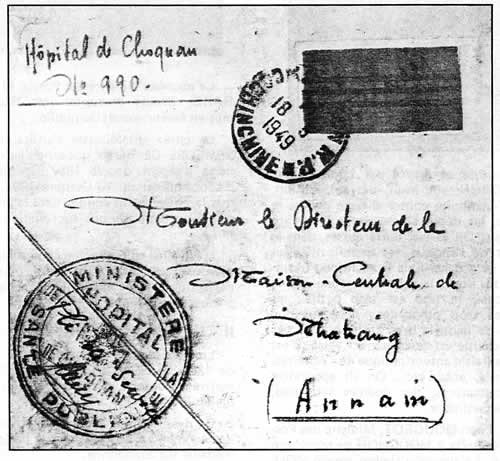 Hôpital de Choquan
No 990.
18
1949
Monsieur le Directeur de la
Maison-Centrale de
Nhatrang
(Annam)
MINISTERE DE LA SANTE PUBLIQUE
HOPITAL
DE CHOQUAN